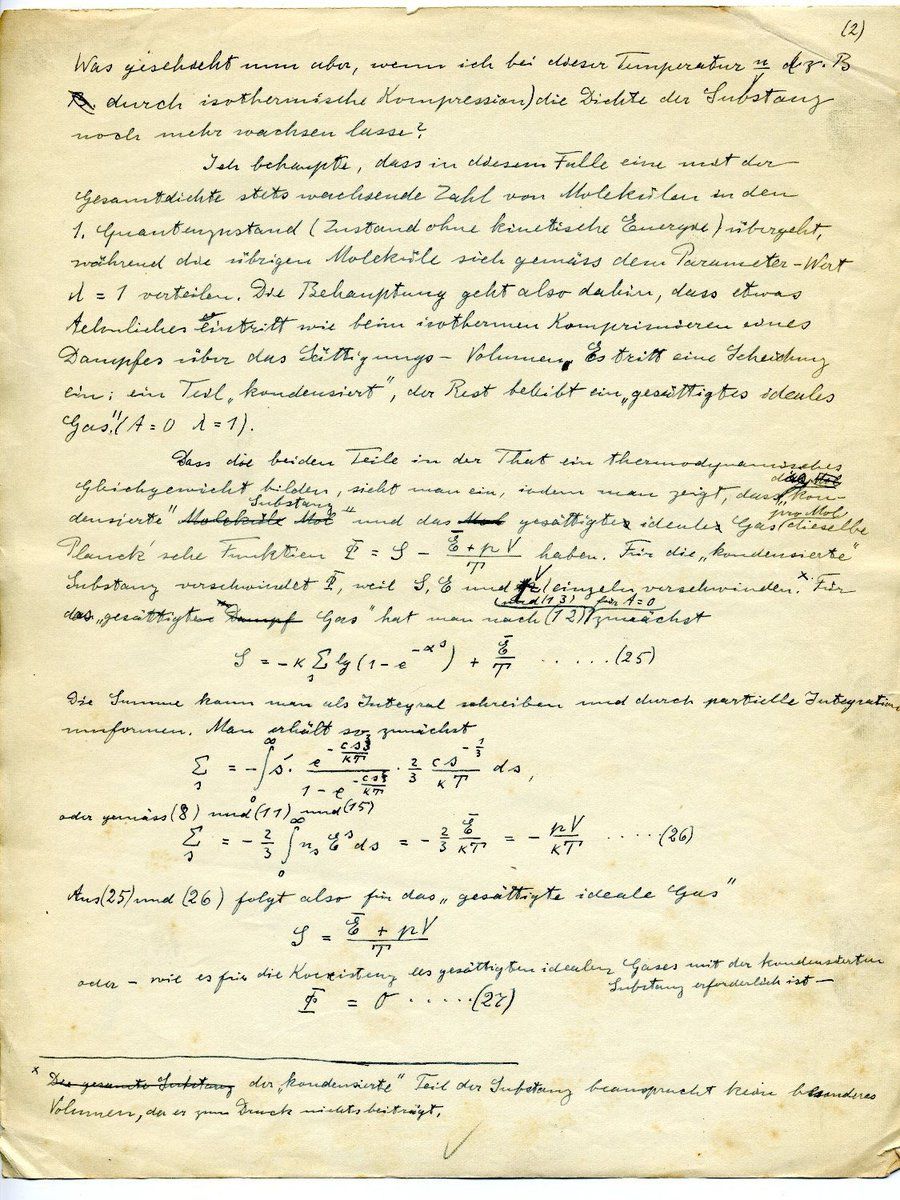 (2)
Was geschieht nun aber, wenn ich bei dieser Temperatur n (z. B.
durch isothermische Kompression) die Dichte der Substanz
noch mehr wachsen lasse?
Ich behaupte, dass in diesem Falle eine mit der
Gesamtdichte stets wachsende Zahl von Molekülen in den
1. Quantenzustand (Zustand ohne kinetische Energie) übergeht,
während die übrigen Moleküle sich gemäss dem Parameter-Wert
λ = 1 verteilen. Die Behauptung geht also dahin, dass etwas
Aehnliches eintritt wie beim isothermen Komprimieren eines
Dampfes über das Sättigungs-Volumen. Es tritt eine Scheidung
ein; ein Teil „kondensiert", der Rest bleibt ein „gesättigtes ideales
Gas". (A = 0 λ = 1).
Dass die beiden Teile in der That ein thermodynamisches
Gleichgewicht bilden, sieht man ein, indem man zeigt, dass die „kon-
densierte" Molekūle Mol Substanz und das Mol gesättigte ideale Gas pro Mol dieselbe
Planck'sche Funktion Φ = S − (Ē + pV)/T haben. Für die „kondensierte"
Substanz verschwindet Φ, weil S, E und V einzeln verschwinden.ˣ Für
das „gesättigte Dampf Gas" hat man nach (12) und (13) für A=0 zunächst
S = −κ Σₛ lg(1 − e^(−αˢ)) + Ē/T ...... (25)
Die Summe kann man als Integral schreiben und durch partielle Integration
umformen. Man erhält so zunächst
Σₛ = −∫₀^∞ s · e^(−cs^(2/3)/κT) / (1 − e^(−cs^(2/3)/κT)) · 2/3 cs^(−1/3)/κT ds,
oder gemäss (8) und (11) und (15)
Σₛ = −2/3 ∫₀^∞ nₛ Eˢ ds = −2/3 Ē/κT = −pV/κT ..... (26)
Aus (25) und (26) folgt also für das „gesättigte ideale Gas"
S = (Ē + pV)/T
oder – wie es für die Koexistenz des gesättigten idealen Gases mit der kondensierten
Substanz erforderlich ist –
Φ = 0 ...... (27)
ˣ Die gesamte Substanz der „kondensierte" Teil der Substanz beansprucht kein besonderes
Volumen, da er zum Druck nichts beiträgt.